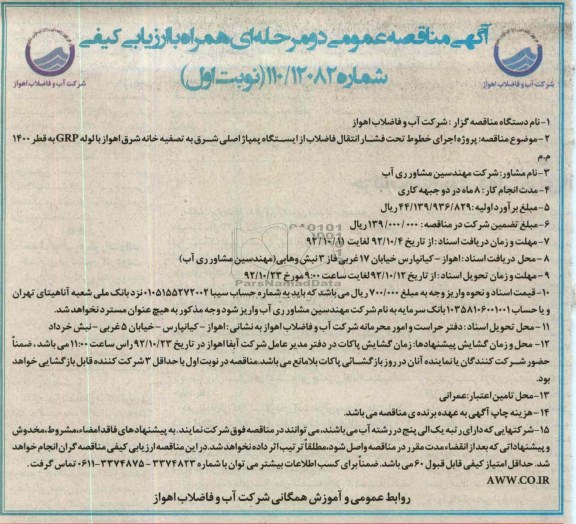 آگهی مناقصه عمومی دو مرحله‌ای همراه با ارزیابی کیفی
شماره ۱۱۰/۱۲۰۸۲ (نوبت اول)
شرکت آب و فاضلاب اهواز
شرکت آب و فاضلاب اهواز
۱- نام دستگاه مناقصه گزار : شرکت آب و فاضلاب اهواز
۲- موضوع مناقصه: پروژه اجرای خطوط تحت فشار انتقال فاضلاب از ایستگاه پمپاژ اصلی شرق به تصفیه خانه شرق اهواز با لوله GRP به قطر ۱۴۰۰
م.م
۳- نام مشاور: شرکت مهندسین مشاور ری آب
۴- مدت انجام کار : ۸ ماه در دو جبهه کاری
۵- مبلغ برآورد اولیه: ۴۴/۱۳۹/۹۳۶/۸۲۹ ریال
۶- مبلغ تضمین شرکت در مناقصه : ۱۳۹/۰۰۰/۰۰۰ ریال
۷- مهلت و زمان دریافت اسناد : از تاریخ ۹۲/۱۰/۴ لغایت ۹۲/۱۰/۱۱
۸- محل دریافت اسناد: اهواز - کیانپارس خیابان ۱۷ غربی فاز ۳ نبش وهابی (مهندسین مشاور ری آب)
۹- مهلت و زمان تحویل اسناد : از تاریخ ۹۲/۱۰/۱۲ لغایت ساعت ۹:۰۰ مورخ ۹۲/۱۰/۲۳
۱۰- قیمت اسناد و نحوه واریز وجه به مبلغ ۷۰۰/۰۰۰ ریال می باشد که باید به شماره حساب سیبا ۰۱۰۵۱۵۵۲۷۲۰۰۲ نزد بانک ملی شعبه آناهیتای تهران
و یا حساب ۱۰۳۵۸۱۰۶۰۰۱۰۰۱ بانک سرمایه به نام شرکت مهندسین مشاور ری آب واریز شود وجه مذکور به هیچ عنوان مسترد نخواهد شد.
۱۱- محل تحویل اسناد : دفتر حراست و امور محرمانه شرکت آب و فاضلاب اهواز به نشانی : اهواز - کیانپارس - خیابان ۵ غربی - نبش خرداد
۱۲- محل و زمان گشایش پیشنهادها: زمان گشایش پاکات در دفتر مدیر عامل شرکت آبفا اهواز در تاریخ ۹۲/۱۰/۲۳ راس ساعت ۱۱:۰۰ می باشد ، ضمناً
حضور شرکت کنندگان یا نماینده آنان در روز بازگشائی پاکات بلامانع می باشد. مناقصه در نوبت اول با حداقل ۳ شرکت کننده قابل بازگشایی خواهد
بود.
۱۳- محل تامین اعتبار: عمرانی
۱۴- هزینه چاپ آگهی به عهده برنده ی مناقصه می باشد.
۱۵- شرکتهایی که دارای رتبه یک الی پنج در رشته آب می باشند، می توانند در مناقصه فوق شرکت نمایند. به پیشنهادهای فاقد امضاء، مشروط، مخدوش
و پیشنهاداتی که بعد از انقضاء مدت مقرر در مناقصه واصل شود، مطلقاً ترتیب اثر داده نخواهد شد. در این مناقصه ارزیابی کیفی مناقصه گران انجام خواهد
شد. حداقل امتیاز کیفی قابل قبول ۶۰ می باشد. ضمناً برای کسب اطلاعات بیشتر می توان با شماره ۳۳۷۴۸۲۳ - ۳۳۷۴۸۷۵-۰۶۱۱ تماس گرفت.
AWW.CO.IR
روابط عمومی و آموزش همگانی شرکت آب و فاضلاب اهواز
ParsNamadData